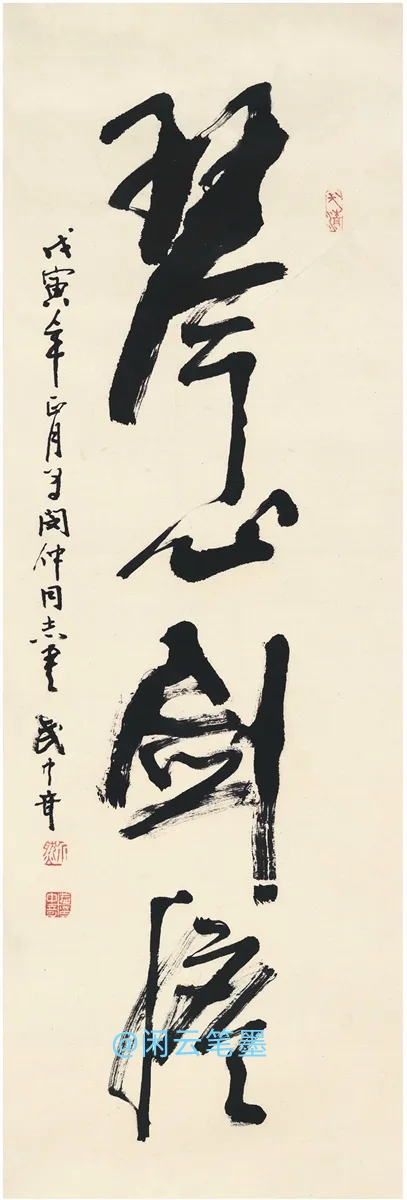 琴心剑膽
戊寅年正月为仲同志书
武中奇
@闲云笔墨